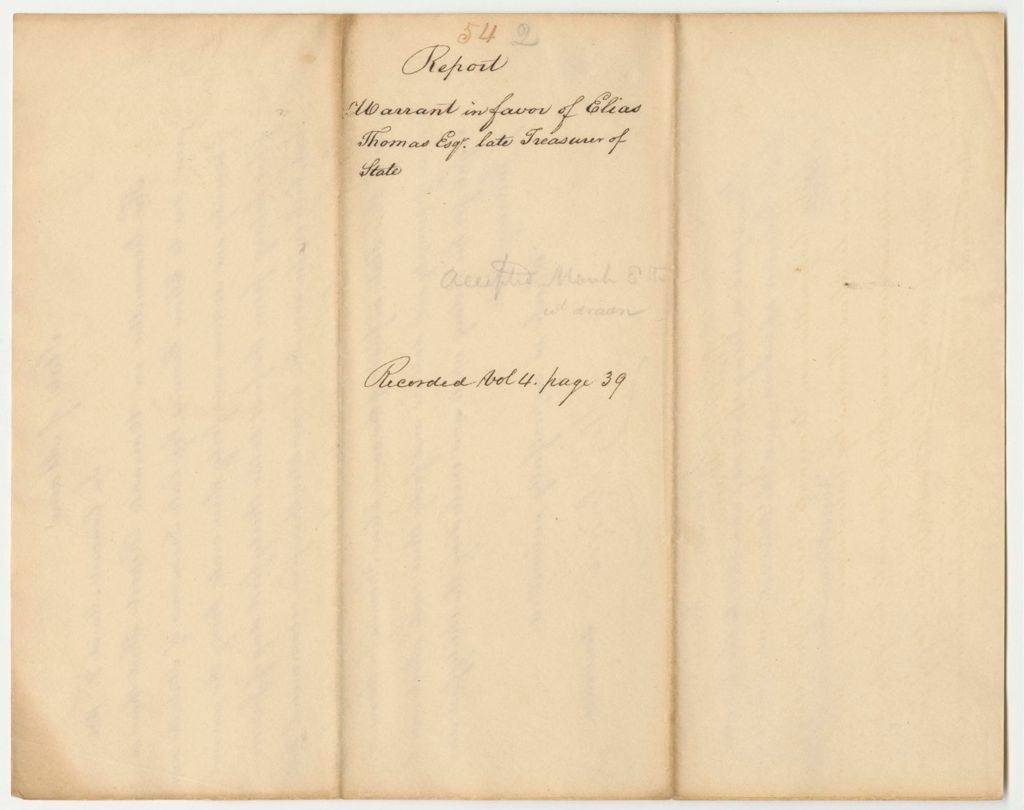 54 2
Report
Warrant in favor of Elias
Thomas Esqr. late Treasurer of
State
Accepted March 8th
wt drawn
Recorded Vol 4. page 39